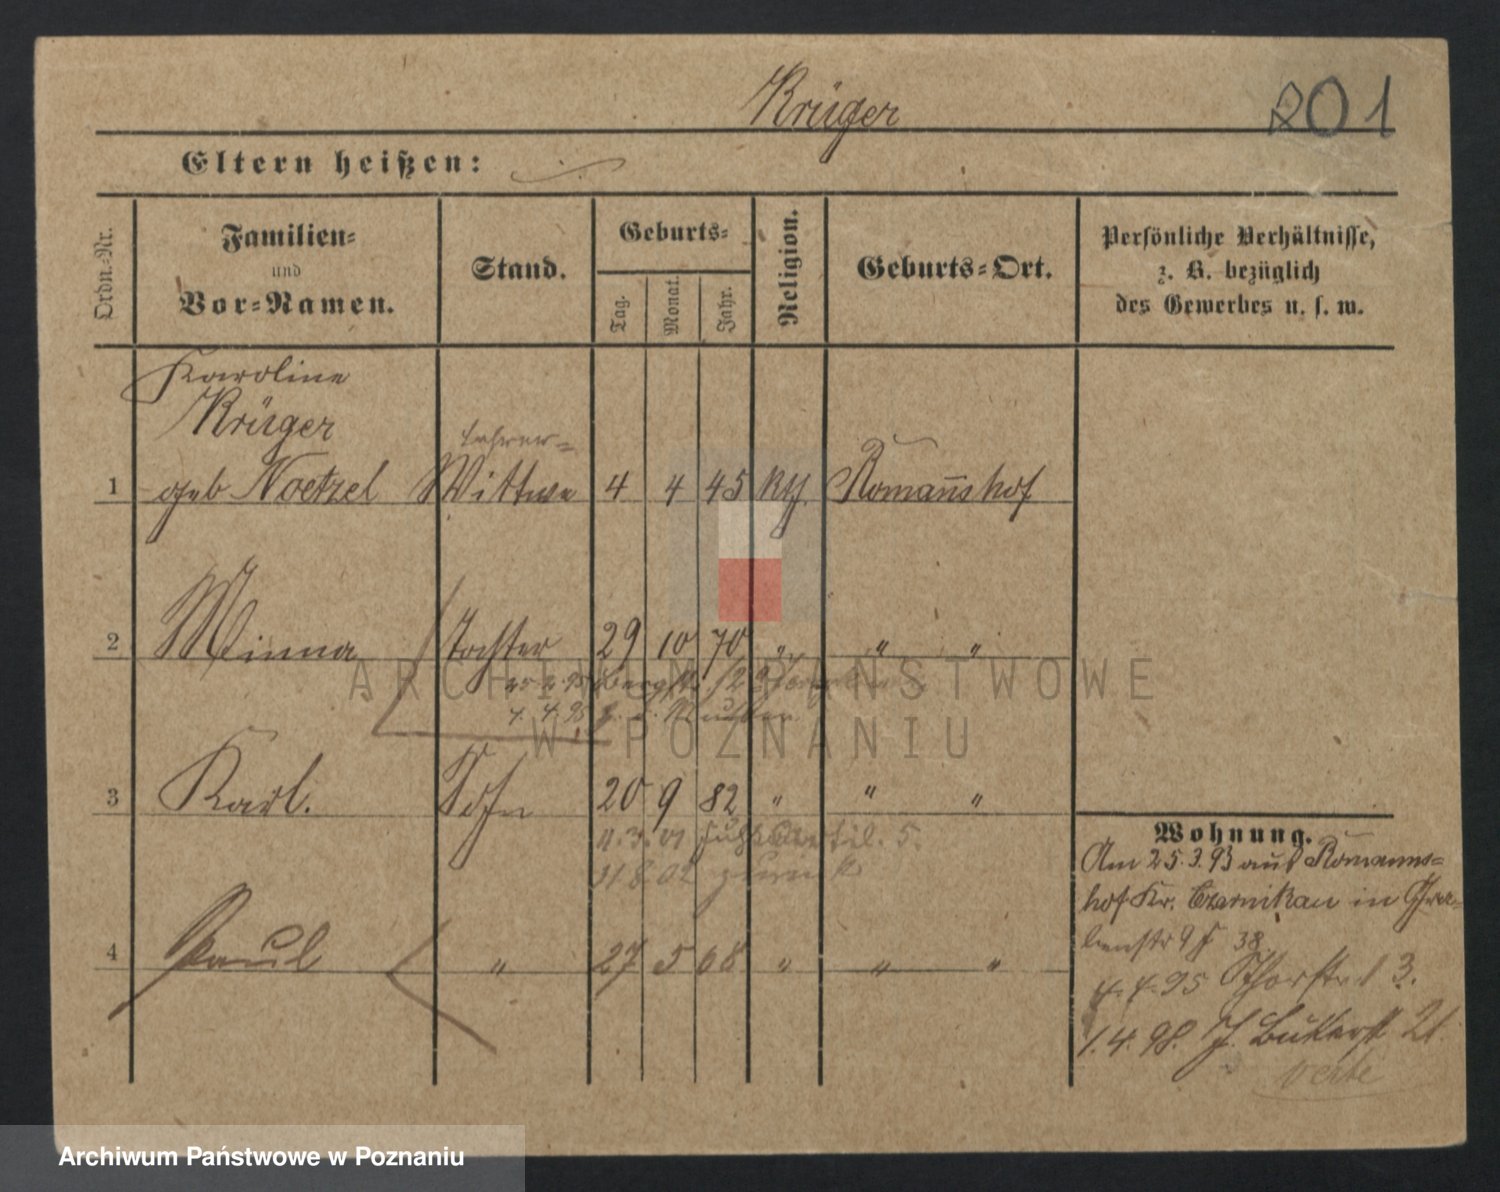 Krüger 201
Eltern heißen:
Ordn.-Nr.
Familien-
und
Vor-Namen.
Stand.
Geburts-
Tag.
Monat.
Jahr.
Religion.
Geburts-Ort.
Persönliche Verhältnisse,
z. B. bezüglich
des Gewerbes u. s. w.
Karoline
Krüger
Lehrer-
1 geb Noetzel Wittwe 4 4 45 Romannshof
2 Minna Tochter 29 10 70 " " "
25.2.95
4.4.98
3 Karl. Sohn 20 9 82 " " "
11.3.01 Fußartil. 5.
31.8.02 zurück
4 Paul " 27 5 68 " " "
Wohnung.
Am 25.3.93 aus Romanns-
hof Kr. Czarnikau in Gra-
benstr 9 38
4.4.95 Thorstr 13.
1.4.98. Bukerstr 21.
verte
ARCHIWUM PAŃSTWOWE
W POZNANIU
Archiwum Państwowe w Poznaniu